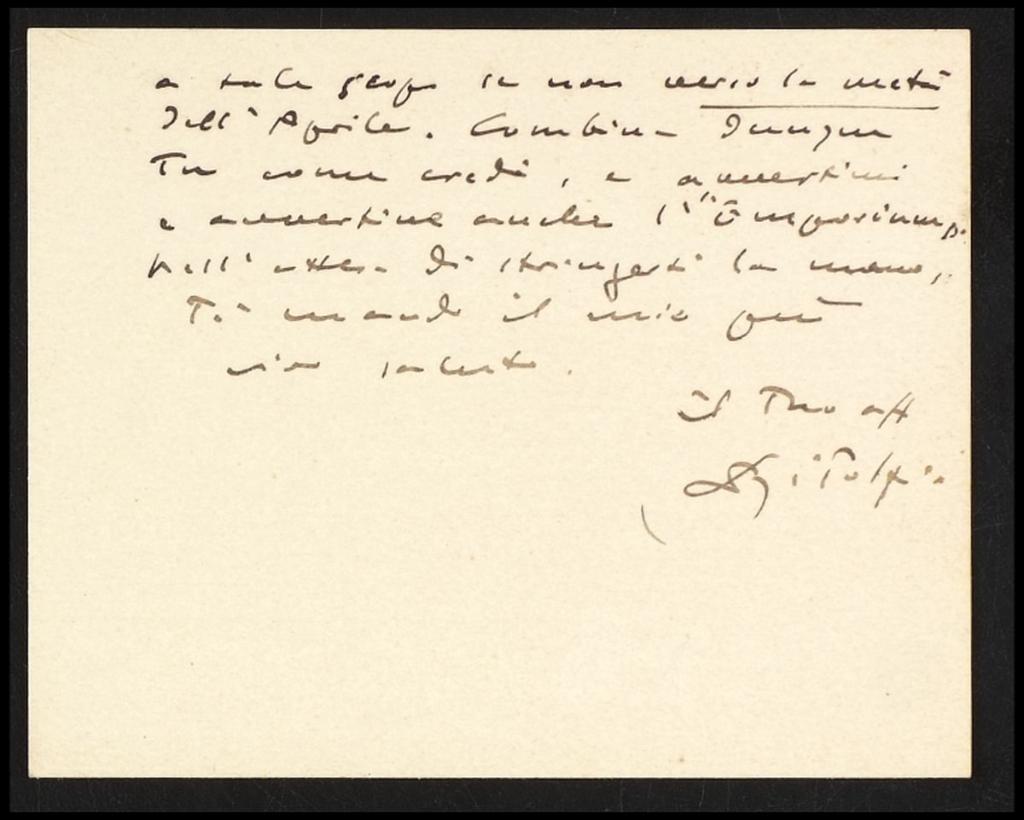 a tale scopo se non verso la metà
dell'Aprile. Combina dunque
Tu come credi, e avvertimi
e avvertine anche l'"Emporium".
Nell'attesa di stringerti la mano,
Ti mando il mio più
vivo saluto.
il Tuo aff